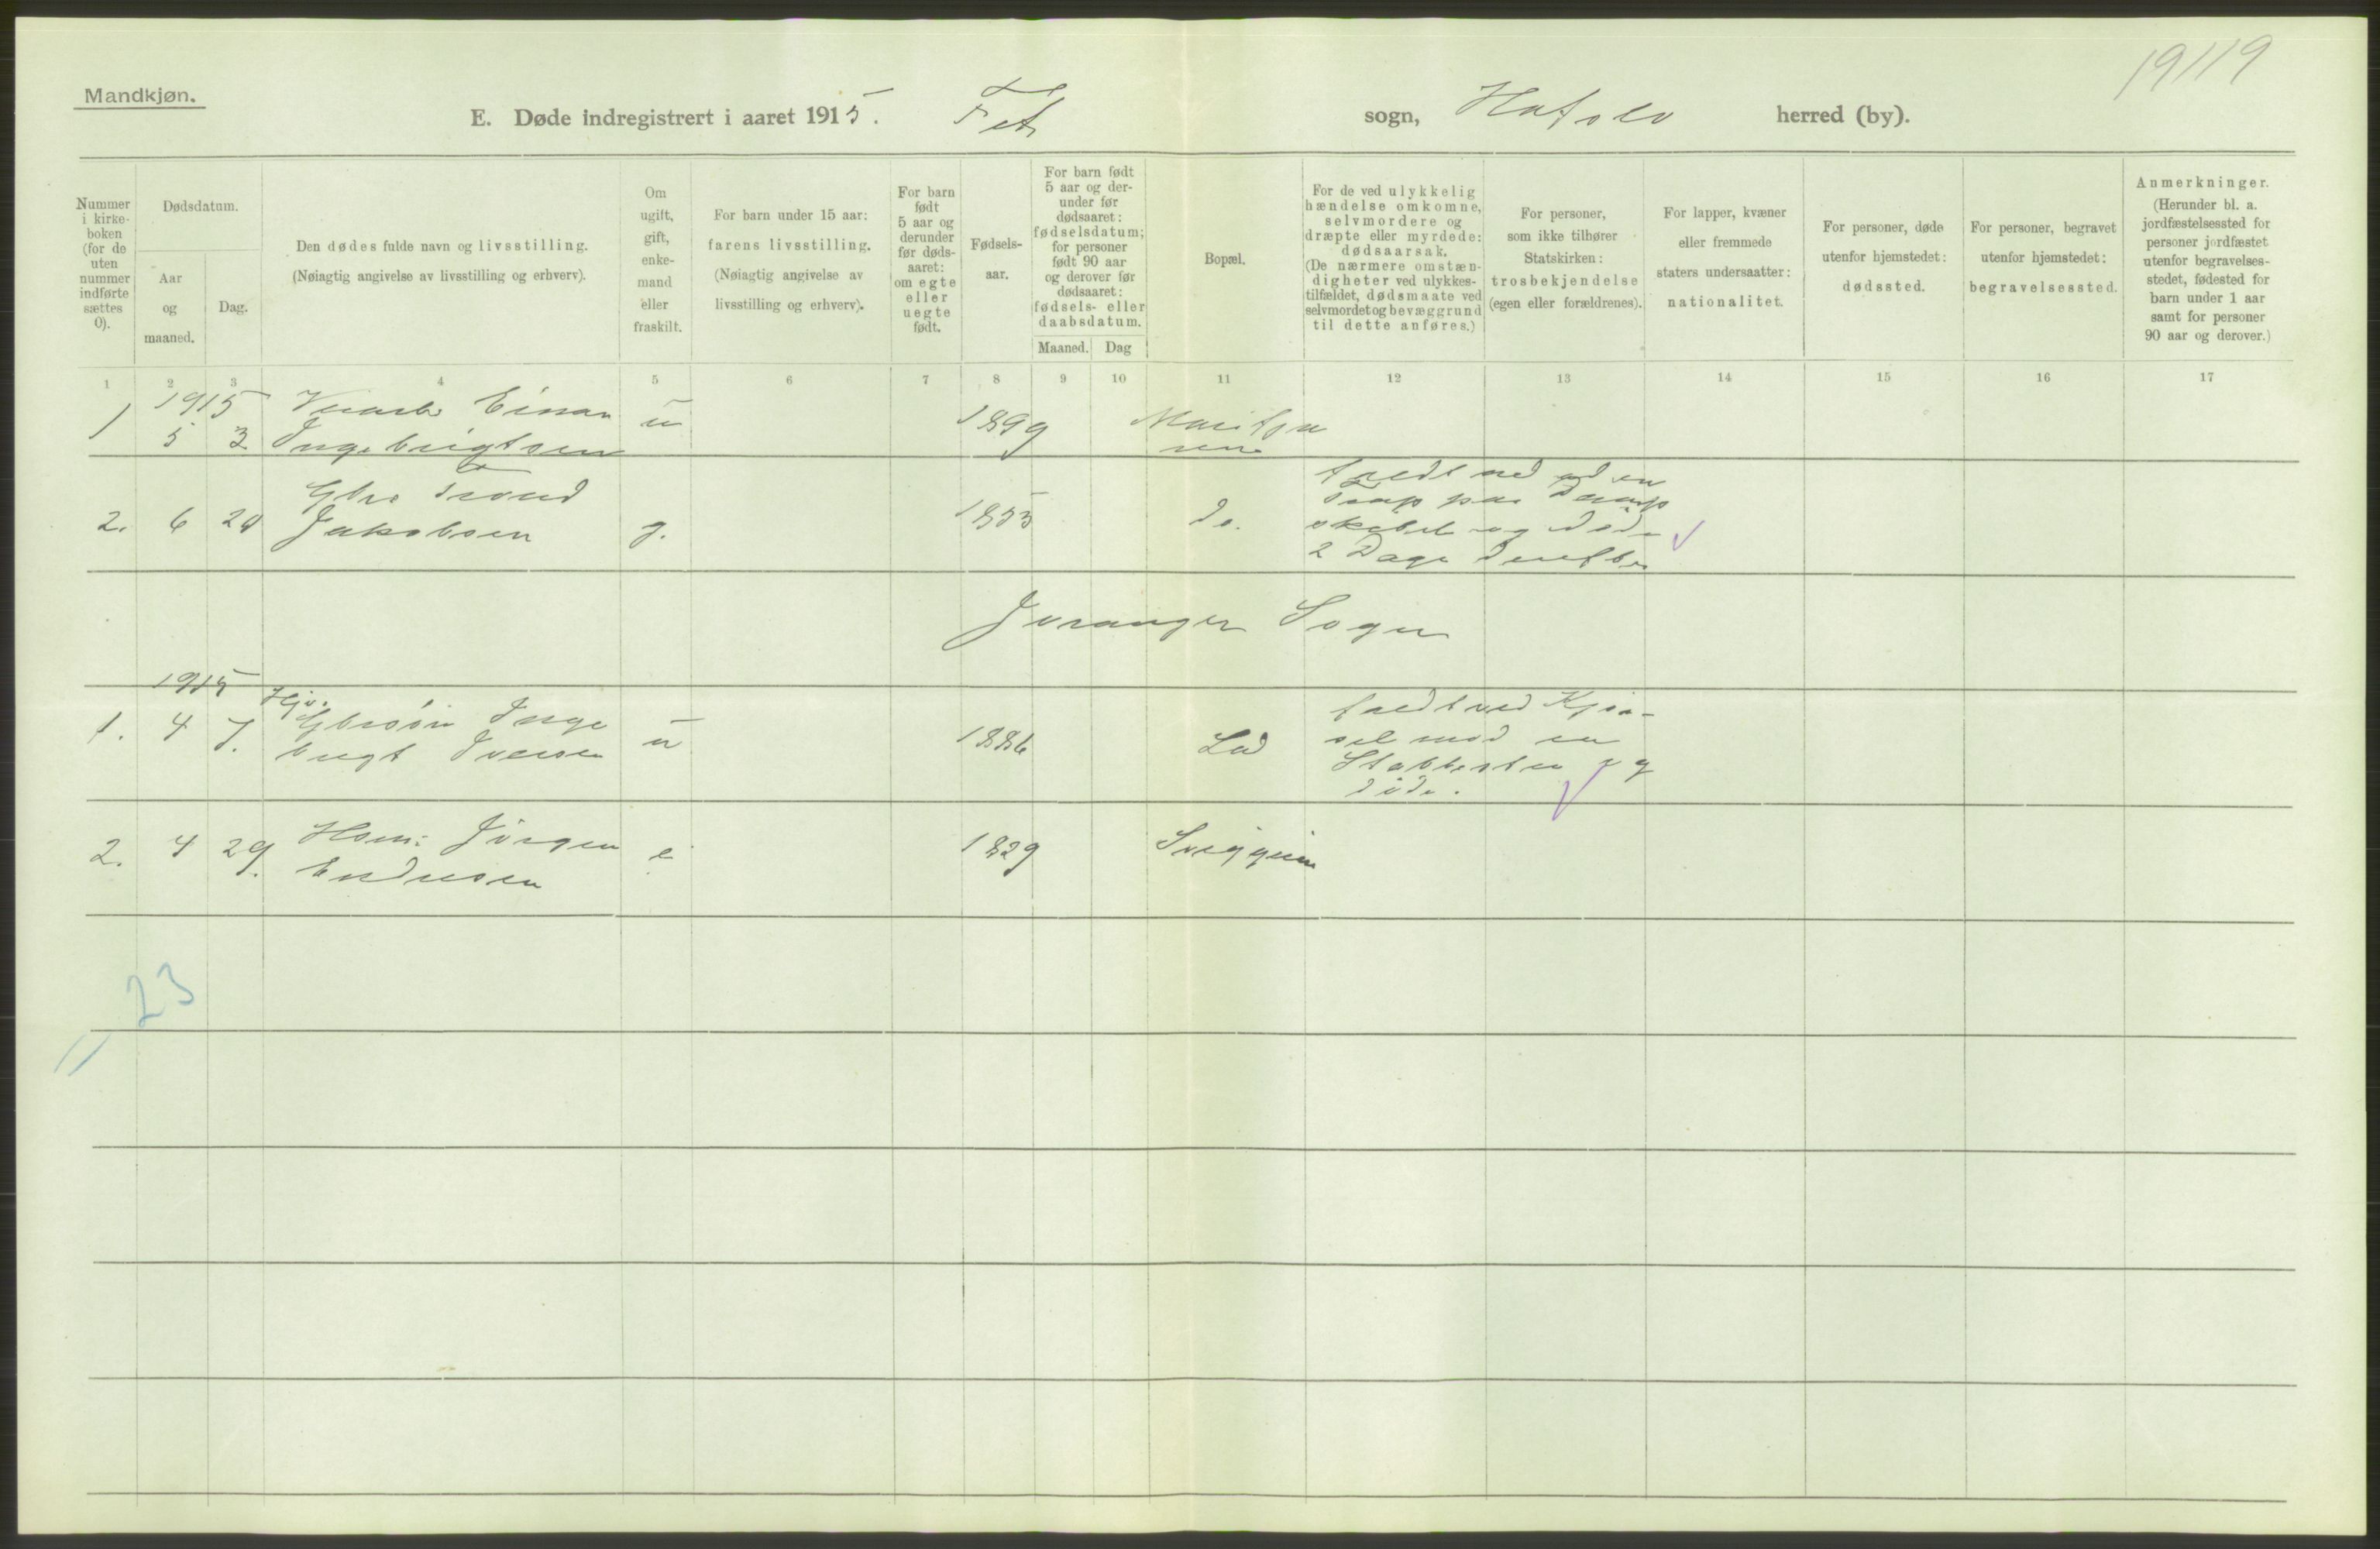 19119
Mandkjøn.
E. Døde indregistrert i aaret 1915. Fet sogn, Hafslo herred (by).
Nummer
i kirke-
boken
(for de
uten
nummer
indførte
sættes
0).
Dødsdatum.
Aar
og
maaned.
Dag.
Den dødes fulde navn og livsstilling.
(Nøiagtig angivelse av livsstilling og erhverv).
Om
ugift,
gift,
enke-
mand
eller
fraskilt.
For barn under 15 aar:
farens livsstilling.
(Nøiagtig angivelse av
livsstilling og erhverv).
For barn
født
5 aar og
derunder
før døds-
aaret:
om egte
eller
uegte
født.
Fødsels-
aar.
For barn født
5 aar og der-
under før
dødsaaret:
fødselsdatum;
for personer
født 90 aar
og derover før
dødsaaret:
fødsels- eller
daabsdatum.
Maaned. Dag
Bopæl.
For de ved ulykkelig
hændelse omkomne,
selvmordere og
dræpte eller myrdede:
dødsaarsak.
(De nærmere omstæn-
digheter ved ulykkes-
tilfældet, dødsmaate ved
selvmordet og bevæggrund
til dette anføres.)
For personer,
som ikke tilhører
Statskirken:
trosbekjendelse
(egen eller forældrenes).
For lapper, kvæner
eller fremmede
staters undersaatter:
nationalitet.
For personer, døde
utenfor hjemstedet:
dødssted.
For personer, begravet
utenfor hjemstedet:
begravelsessted.
Anmerkninger.
(Herunder bl. a.
jordfæstelsessted for
personer jordfæstet
utenfor begravelses-
stedet, fødested for
barn under 1 aar
samt for personer
90 aar og derover.)
1 2 3 4 5 6 7 8 9 10 11 12 13 14 15 16 17
1915
1 5 3 Einar
Ingebrigtsen u 1899
2. 6 20 Gbr
Jakobsen g. 1855 do.
faldt ned ad en
Trap paa Damp
skibet og døde
2 Dage derefter
Joranger Sogn
1915
1. 4 7. Gbrsøn Inge
brigt Iversen u 1886 Lad
faldt ved Kjør-
sel mod en
Stabbesten og
døde.
2. 4 29. Hsm: Jörgen
Endresen e 1829
23